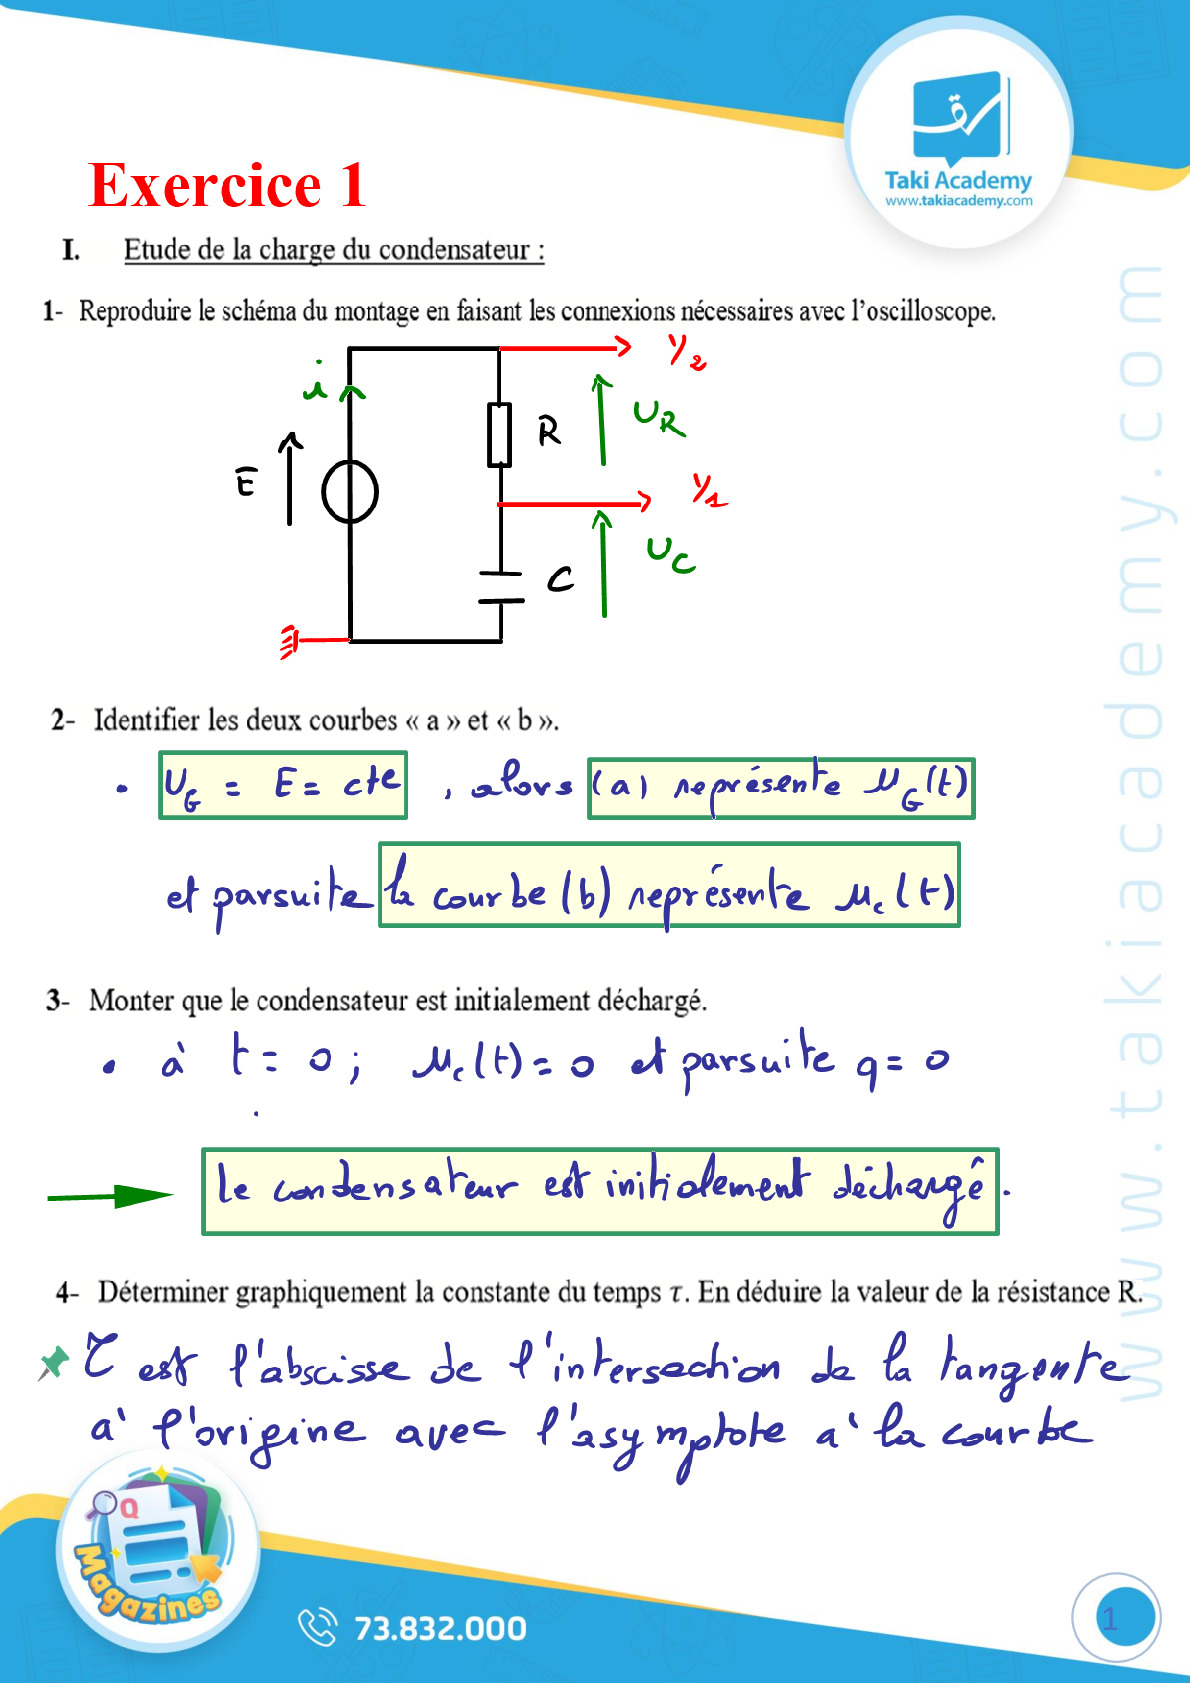 Taki Academy
www.takiacademy.com
Exercice 1
I. Etude de la charge du condensateur :
1- Reproduire le schéma du montage en faisant les connexions nécessaires avec l'oscilloscope.
Y2
i
UR
R
E
Y1
UC
C
2- Identifier les deux courbes « a » et « b ».
• UG = E = cte , alors (a) représente uG(t)
et parsuite la courbe (b) représente uc(t)
3- Monter que le condensateur est initialement déchargé.
• à t = 0 ; uc(t) = 0 et parsuite q = 0
Le condensateur est initialement déchargê.
4- Déterminer graphiquement la constante du temps τ. En déduire la valeur de la résistance R.
τ est l'abscisse de l'intersection de la tangente
à l'origine avec l'asymptote à la courbe
www.takiacademy.com
Q
Magazines
73.832.000
1